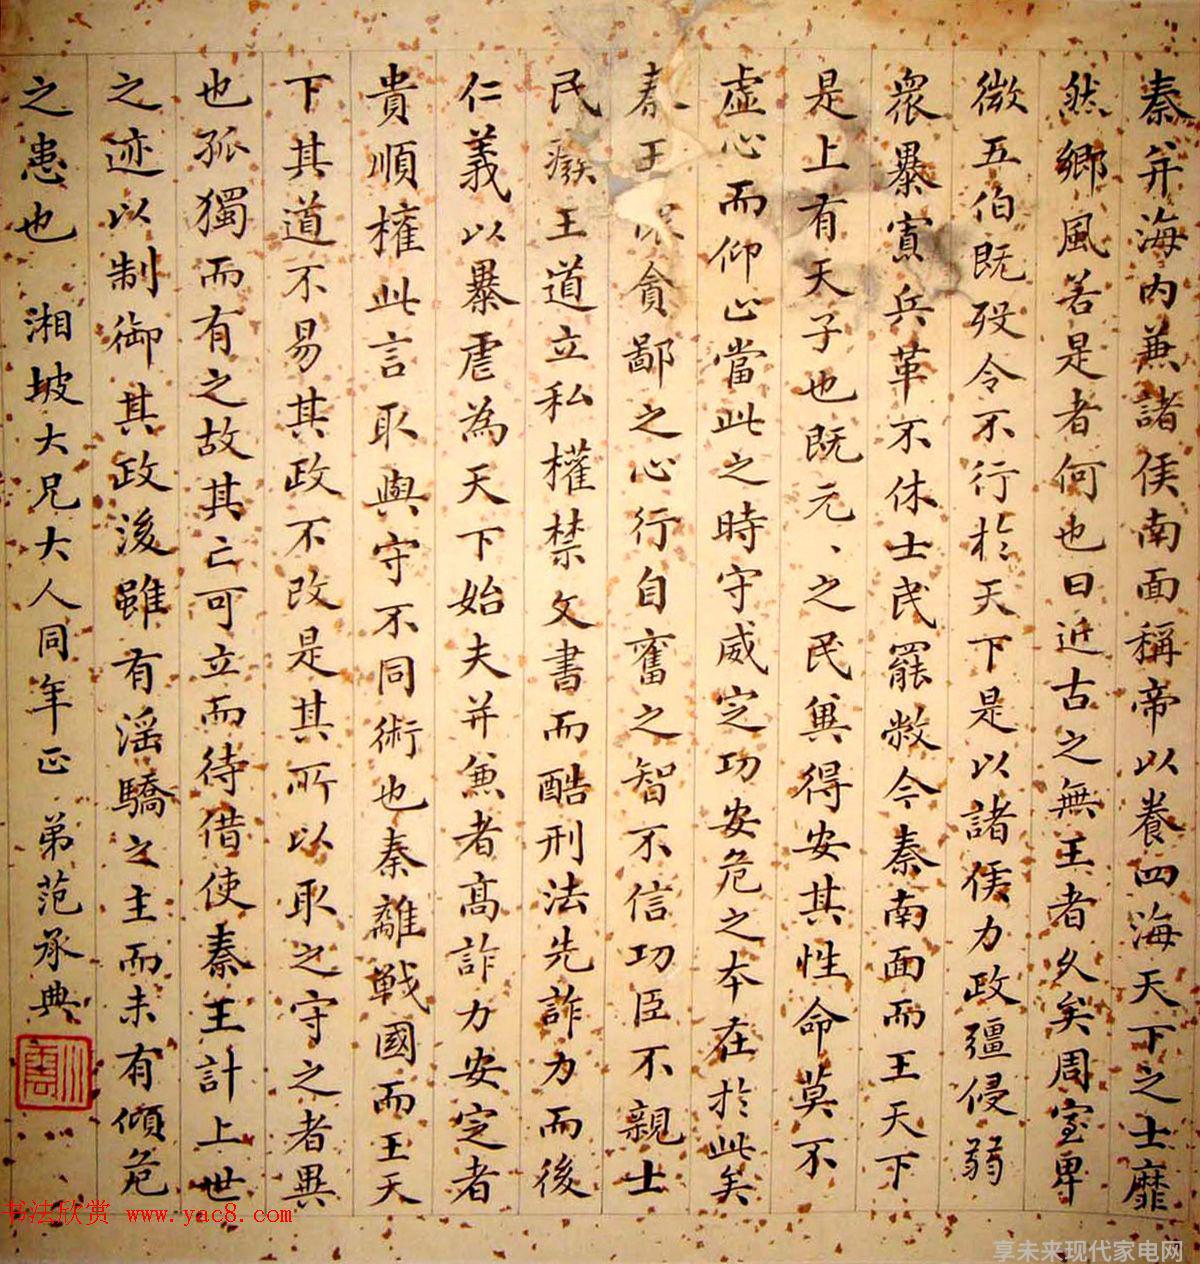 秦并海内兼諸侯南面稱帝以養四海天下之士靡
然鄉風若是者何也曰近古之無王者久矣周室卑
微五伯既歿令不行於天下是以諸侯力政彊侵弱
衆暴寡兵革不休士民罷敝今秦南面而王天下
是上有天子也既元丶之民兾得安其性命莫不
虚心而仰上當此之時守威定功安危之本在於此矣
秦王貪鄙之心行自奮之智不信功臣不親士
民廢王道立私權禁文書而酷刑法先詐力而後
仁義以暴虐為天下始夫并兼者高詐力安定者
貴順權此言取與守不同術也秦離戰國而王天
下其道不易其政不改是其所以取之守之者異
也孤獨而有之故其亡可立而待借使秦王計上世
之迹以制御其政後雖有淫驕之主而未有傾危
之患也 湘坡大兄大人同年正 弟范承典
书法欣赏 www.yac8.com
享未来现代家电网